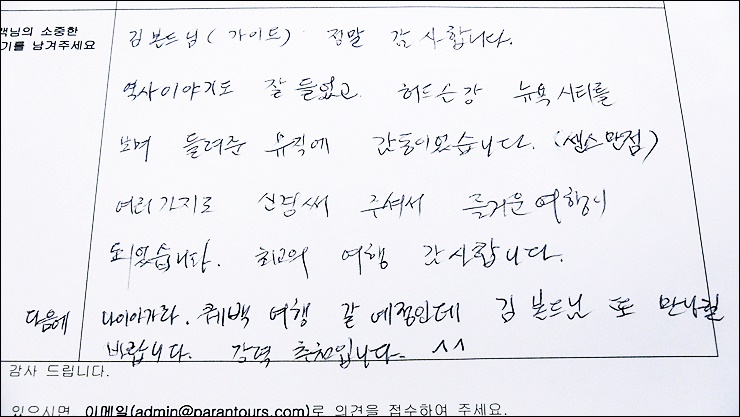 객님의 소중한
기를 남겨주세요
김본드님(가이드) 정말 감사합니다.
역사이야기도 잘 들었고 허드슨강 뉴욕시티를
보며 들려준 뮤직에 감동이었습니다. (쎈스만점)
여러가지로 신경써 주셔서 즐거운 여행이
되었습니다. 최고의 여행 감사합니다.
다음에 나이아가라. 퀘백 여행 갈 예정인데 김본드님 또 만나길
바랍니다. 강력 추천입니다- ^^
감사 드립니다.
있으시면 이메일(admin@parantours.com)로 의견을 접수하여 주세요.